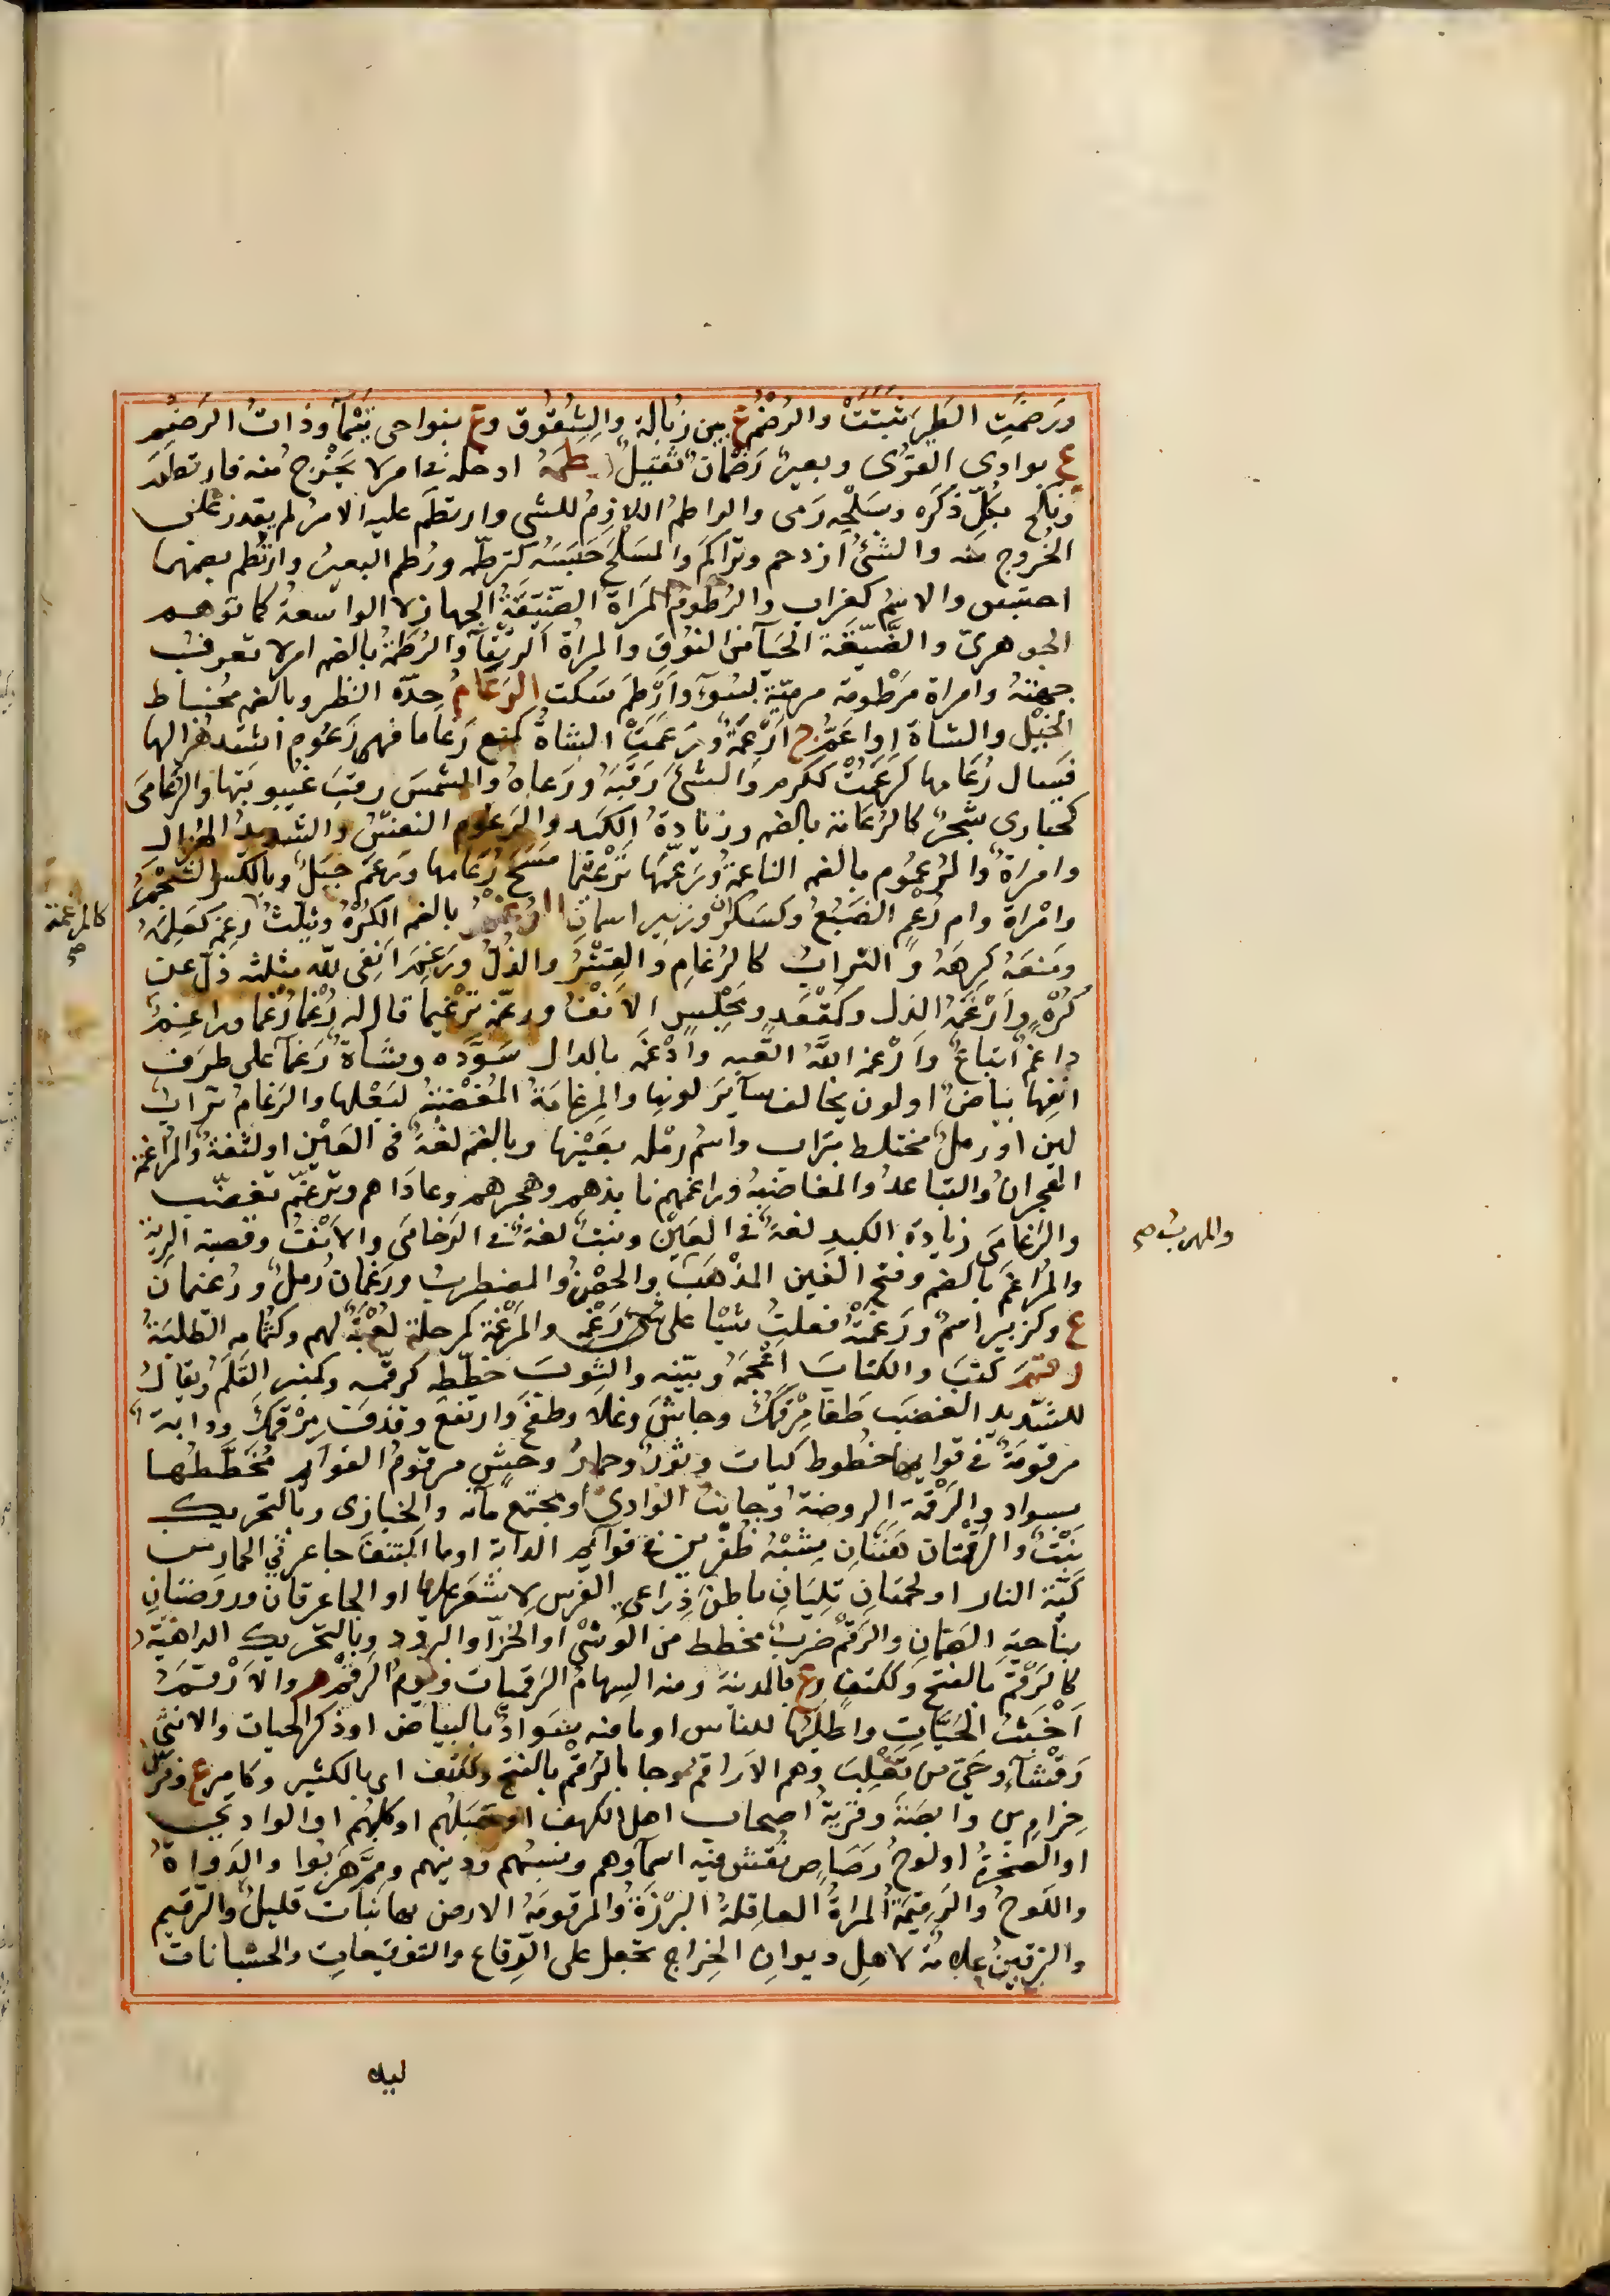 ورَضَمَتِ الطَيرُ ثَبَتَتْ والرَضْمُ ع بين زُبالة والشُقُوق وع بنواحى تَيْمَآ وذاتُ الرَضْمِ
ع بوادى القُرَى وبعيرٌ رَضْمانٌ ثقيلٌ رطمه ادخله فى امر لا يَخْرُج منه فارتطَمَ
ونكح بكلِّ ذَكَره وبسَلْحِه رَمى والراطمُ اللازِمُ للشى وارتطَم عليه الامرُ لم يقدر على
الخُروج منه والشئُ ازدحم وتراكَم والسَلحَ حَبَسَه كتَرطّمه ورُطِم البعيرُ وارتُطم بضمهما
احتبس والاسمُ كغراب والرَطُومُ المَراة الضَيّقةُ الجهاز لا الواسعةُ كما توهم
الجوهرىّ والضَّيّقة الحَيآ من النُوق والمراةُ الرَتْقآ والرُطْمَةُ بالضم امر لا تعرف
جهتهُ وامراة مَرْطُومة مرميّة بسُوٓءٍ وارطَمَ سَكت الرَعَامُ حِدّه النظر وبالضم مُخاط
الخَيْل والشاة او اعَمُّ ج ارْعِمَةٌ ورَعَمَتْ الشاةُ كمنع رُعاما فهى رَعُوم اشتد هُزالها
فسال رُعامها كرَعُمَتْ ككرم والشئَ رَقَبَهُ ورَعاهُ والشمسَ رقبَ غيبوبَتها والرُعامَى
كحبارى شجرٌ كالرُعامة بالضم وزيادةُ الكبد والرَعُوم النفسُ والشديدُ الهُزال
وامراةٌ والرُعْمُوم بالضم الناعمةُ ورَعَّمَها تَرْعِيما مَسَحَ رُعامها ورَعْمٌ جبَلٌ وبالكسر الشَحْمُ
وامْراة وام رِعْم الضَبُعُ وكسَكْرانَ وزبير اسمان الرَغْمُ بالضم الكُرْهُ ويثلّثُ رَغِمَ كعَلِمَهُ
كالمرغمة صح
ومنعَهُ كَرِهَهُ والترابُ كالرُغامِ والقِسْرُ والذُلُّ ورَغَمَ انفى لله مثلثه ذلّ عن
كُرْهٍ وارْغَمَهُ الذل وكمَقْعَدٍ ومَجْلِسٍ الانْفُ ورغّمه تَرْغيما قال له رَغْما رَغْما وراغِمٌ
داغمٌ اتباعٌ وارْغمه اللّهُ القَّبه وادْغَمَه بالدال سَوَّده وشاةٌ رَغْمآ على طرَف
انفِها بياضٌ او لون يخالف سآئرَ لونها والمِرغامَةُ المُغْضِبَةُ لبَعْلِها والرَغامُ ترابٌ
لين او رملٌ مختلط بتراب واسم رَمْله بعَيْنها وبالضم لُغةٌ فى العَيْن او لُثغةٌ والمُراغمَة
الهِجران والتباعدُ والمغاضبةُ وراغمهم نابذهم وهجرهم وعاداهم وترغّم تغضّب
والرُغامَى زيادة الكبدِ لغةٌ فى العَيْن ونبتٌ لغةٌ فى الرُخامَى والانْفُ وقصبة الرية
والمُراغَم بالضم وفتح الغين المذْهَبُ والحصْنُ والمضطربُ ورَغْمانُ رملٌ ورُغَيمان
والمهربُ صح
ع وكزبير اسمٌ ورَغَمْتُه فعلتُ شيئا على رَغْمِه والمَرْغمَة كمرحلة لُعْبَةٌ لهم وكثُمامه الطلِبَةُ
رقم كتب والكتابَ اعْجَمَهُ وبيّنه والثوبَ خطّطه كرقّمه وكمنبر القَلَمُ ويقالُ
للشديد الغضَب طَفا مِرْقَمُكَ وجاشَ وغلا وطفحَ وارتفعَ وقذفَ مِرْقَمُكَ ودابةٌ
مرقومَةٌ فى قوايمها خُطوط كيات وثورٌ وحمارُ وحشٍ مرقومُ القوآيم مُخَطَّطُها
بسواد والرَقْمَة الروضةُ او جانبُ الوادى او مجتمعُ مآئه والخبازى وبالتحريك
نَبْتٌ والرَقْمتان هَنَتَانِ شِبْهُ ظُفْرين فى قوآيم الدابة او ما اكتنفَ جاعرتَي الحمار من
كيّة النار او لحمتان تليان باطنَ ذِراعى الفَرسِ لا شعَر عليهما او الجاعرتان وروضتان
بناحية الصَّمان والرَقْمُ ضربٌ مخطط من الوشْى او الخزّ او البرود وبالتحريك الداهية
كالرَقْم بالفتح وككتف وع بالمدينة ومنه السِهامُ الرَقميات ويومُ الرَقْم م والارْقَمُ
اَخْبَثُ الحُيَّاتِ واطلَبُها للناس او ما فيه سَوادٌ وبياضٌ او ذكر الحيات والانثى
رَقْشآءُ وحَىّ من تَغْلِبَ وهم الاَراقم وجا بالرَقْم بالفتح وككتف اى بالكثير وكامير ع وفرس
حِزام بن وابصَةَ وقريةُ اصحاب اهل الكهف او جَبَلُهم او كلبُهم او الوادى
او الصخرةُ او لوحُ رَصَاص نُقش فيه اسمآؤهم ونسبُهم ودينُهم ومِمَّ هَربُوا والدَواةُ
واللَوحُ والرَقِيمَةُ المراةُ العاقِلةُ البَرْزةُ والمرقومَةُ الارضُ بها نباتٌ قليلٌ والترقيم
والترقين علامة لاهلِ ديوانِ الخِراج تجعل على الرِقاع والتوقيعاتِ والحسبانات
ليلا